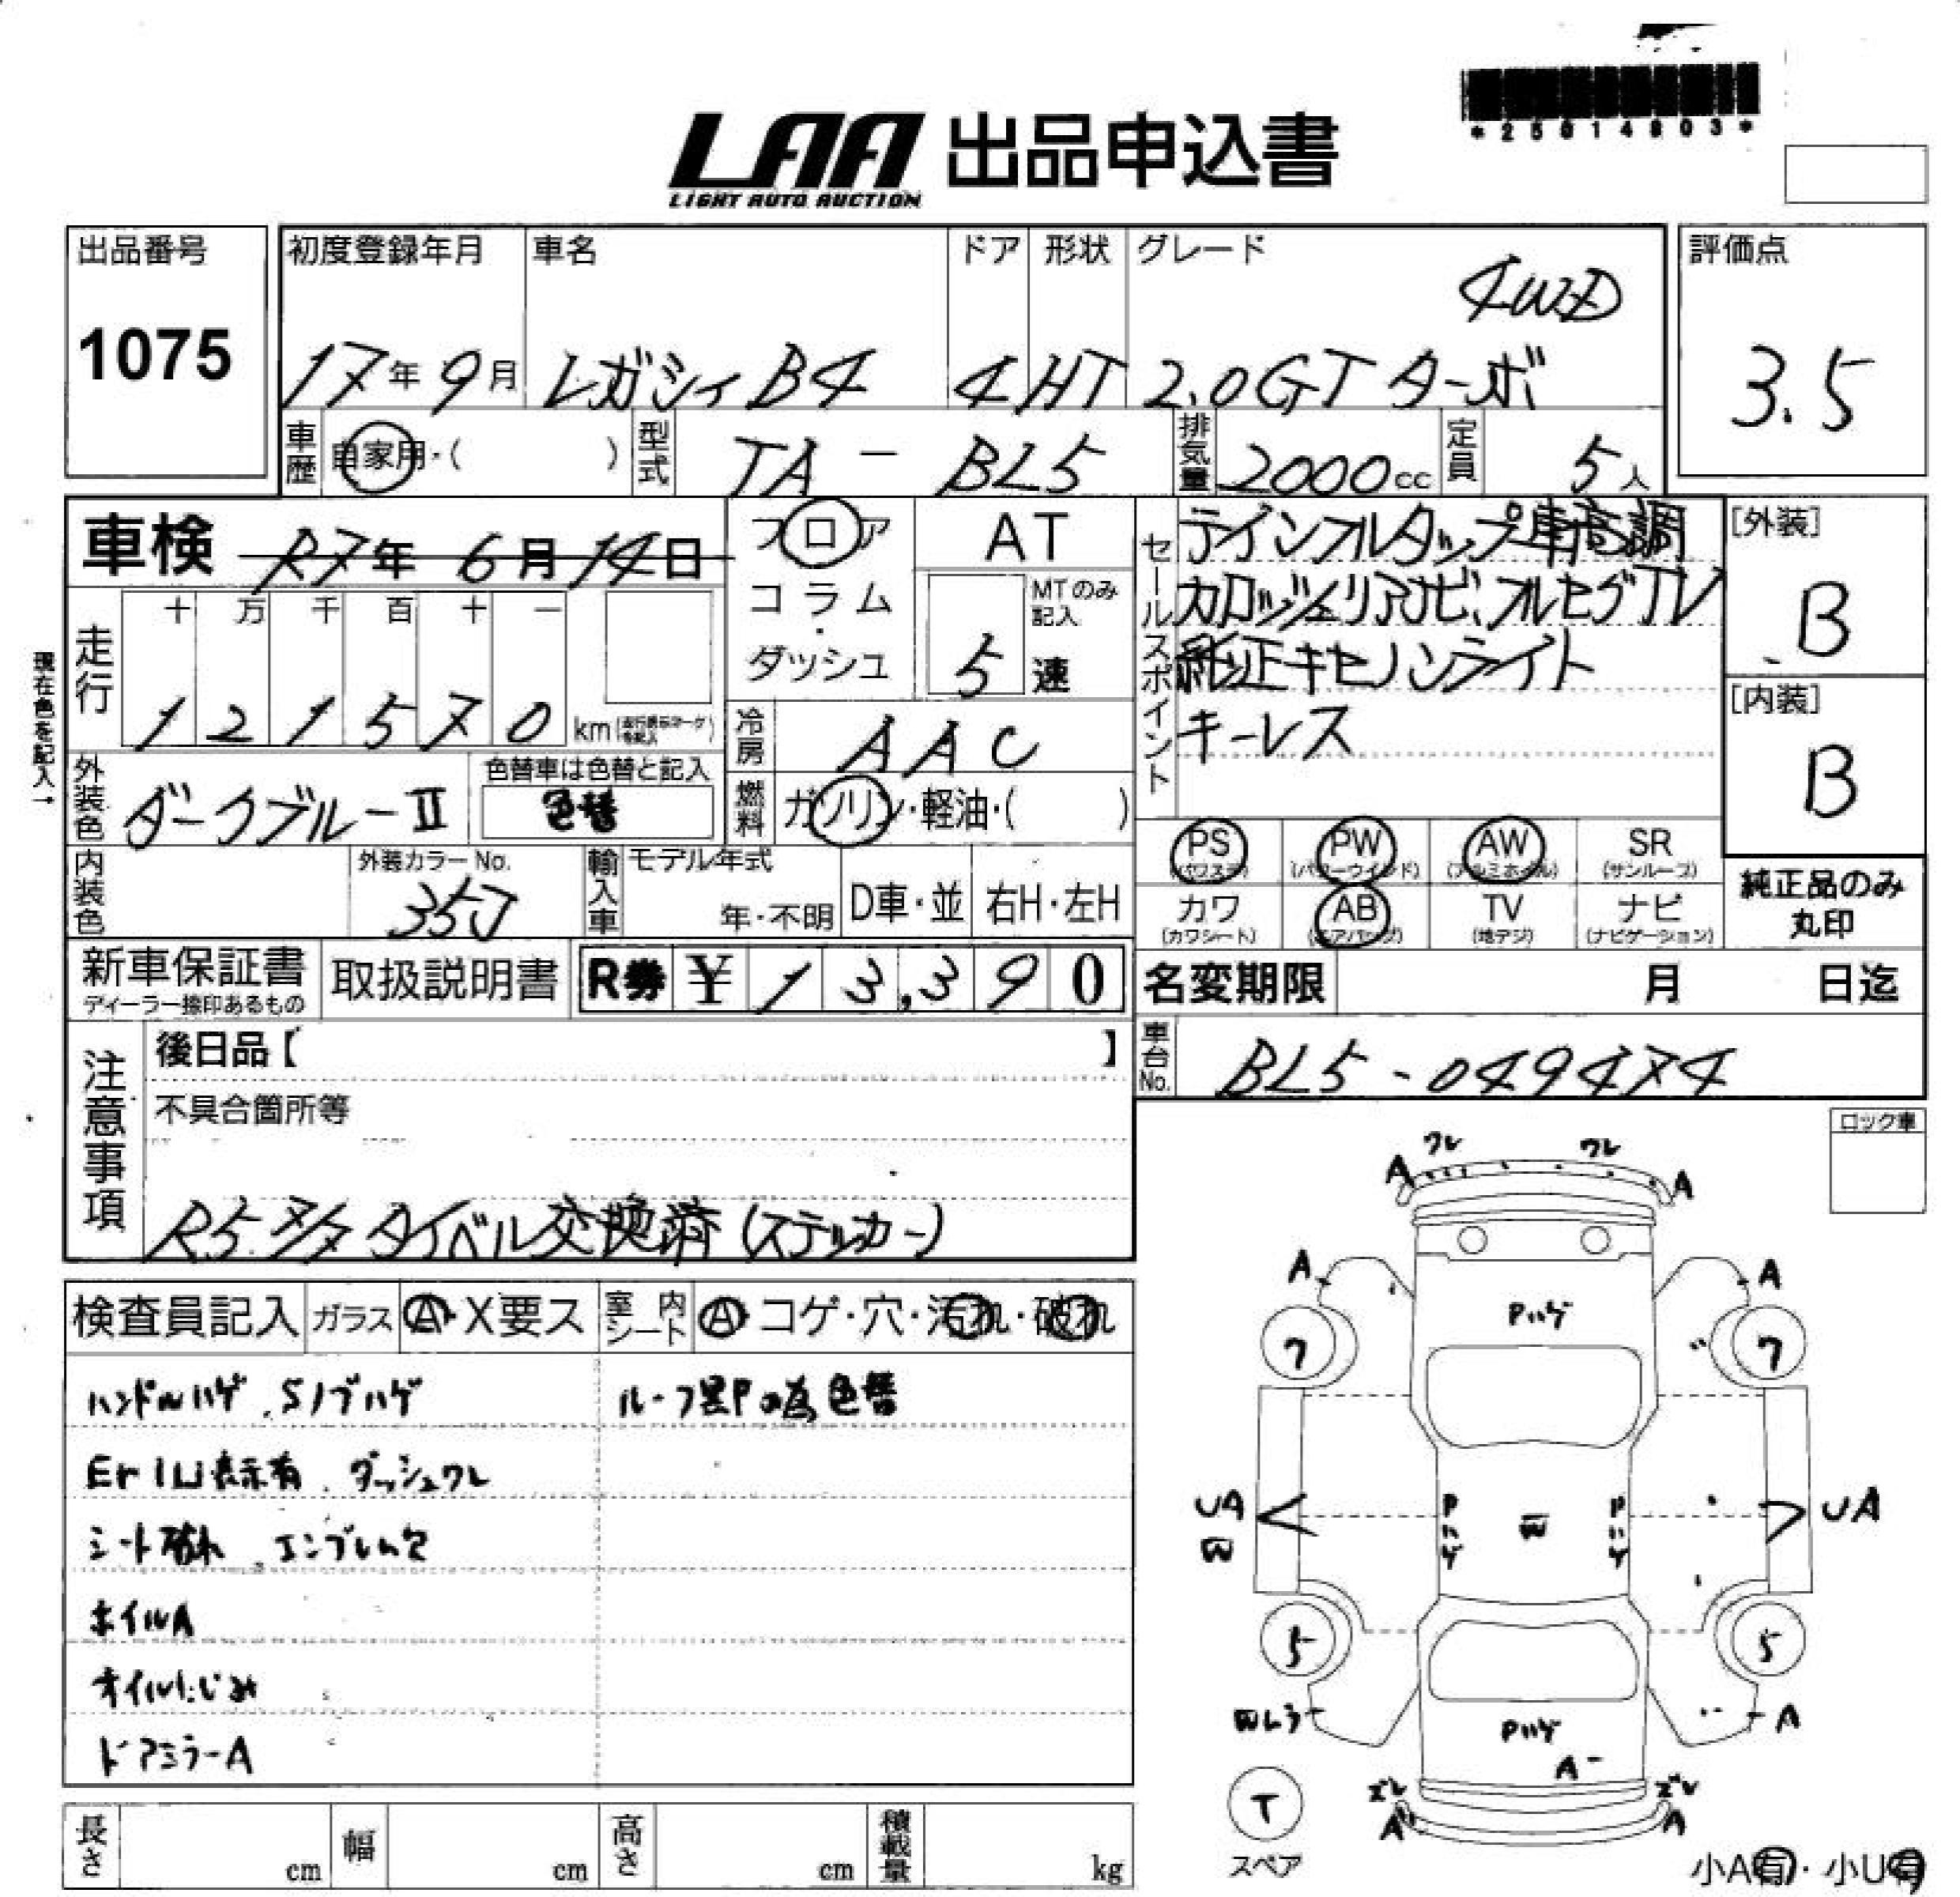 *25014803*
LAA 出品申込書
LIGHT AUTO AUCTION
出品番号 初度登録年月 車名 ドア 形状 グレード 評価点
4WD
1075 17年 9月 レガシィB4 4 HT 2.0GT ターボ 3.5
車歴 自家用・( ) 型式 TA - BL5 排気量 2000cc 定員 5人
車検 R7年 6月14日 フロア AT セールスポイント テインフルタップ車高調 [外装]
コラム・ MTのみ記入 カロッツェリアナビ、フルセグTV B
走行 十 万 千 百 十 一 ダッシュ 5 速 純正キセノンライト
現在色を記入→
1 2 1 5 7 0 km 冷房 AAC キーレス [内装]
B
外装色 ダークブルーII 色替車は色替と記入 色替 燃料 ガソリン・軽油・( )
PS (パワステ) PW (パワーウインド) AW (アルミホイル) SR (サンルーフ)
内装色 外装カラーNo. 35J 輸入車 モデル年式 年・不明 D車・並 右H・左H
カワ (カワシート) AB (エアバッグ) TV (地デジ) ナビ (ナビゲーション) 純正品のみ丸印
新車保証書 ディーラー捺印あるもの 取扱説明書 R券 ¥ 1 3,3 9 0 名変期限 月 日迄
注意事項 後日品【 】 車台No. BL5-049474
不具合箇所等
R5. タイベル交換済(ステッカー)
ロック車
検査員記入 ガラス A・X要ス 室内シート A・コゲ・穴・汚れ・破れ
ハンドルハゲ、Sノブハゲ ルーフ黒Pの為色替
表示有、ダッシュワレ
シート破れ、エンブレム欠
ホイルA
オイルにじみ
ドアミラーA
ワレ ワレ
A A
A A
Pハゲ
7 7
UA Pハゲ W Pハゲ UA
W
5 5
Pハゲ A
A
ズレ ズレ
A A
T
スペア
小A有・小U有
長さ cm 幅 cm 高さ cm 積載量 kg